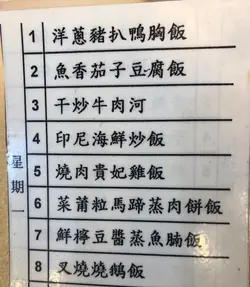 星期一
1 洋蔥豬扒鴨胸飯
2 魚香茄子豆腐飯
3 干炒牛肉河
4 印尼海鮮炒飯
5 燒肉貴妃雞飯
6 菜莆粒馬蹄蒸肉餅飯
7 鮮檸豆醬蒸魚腩飯
8 叉燒燒鵝飯